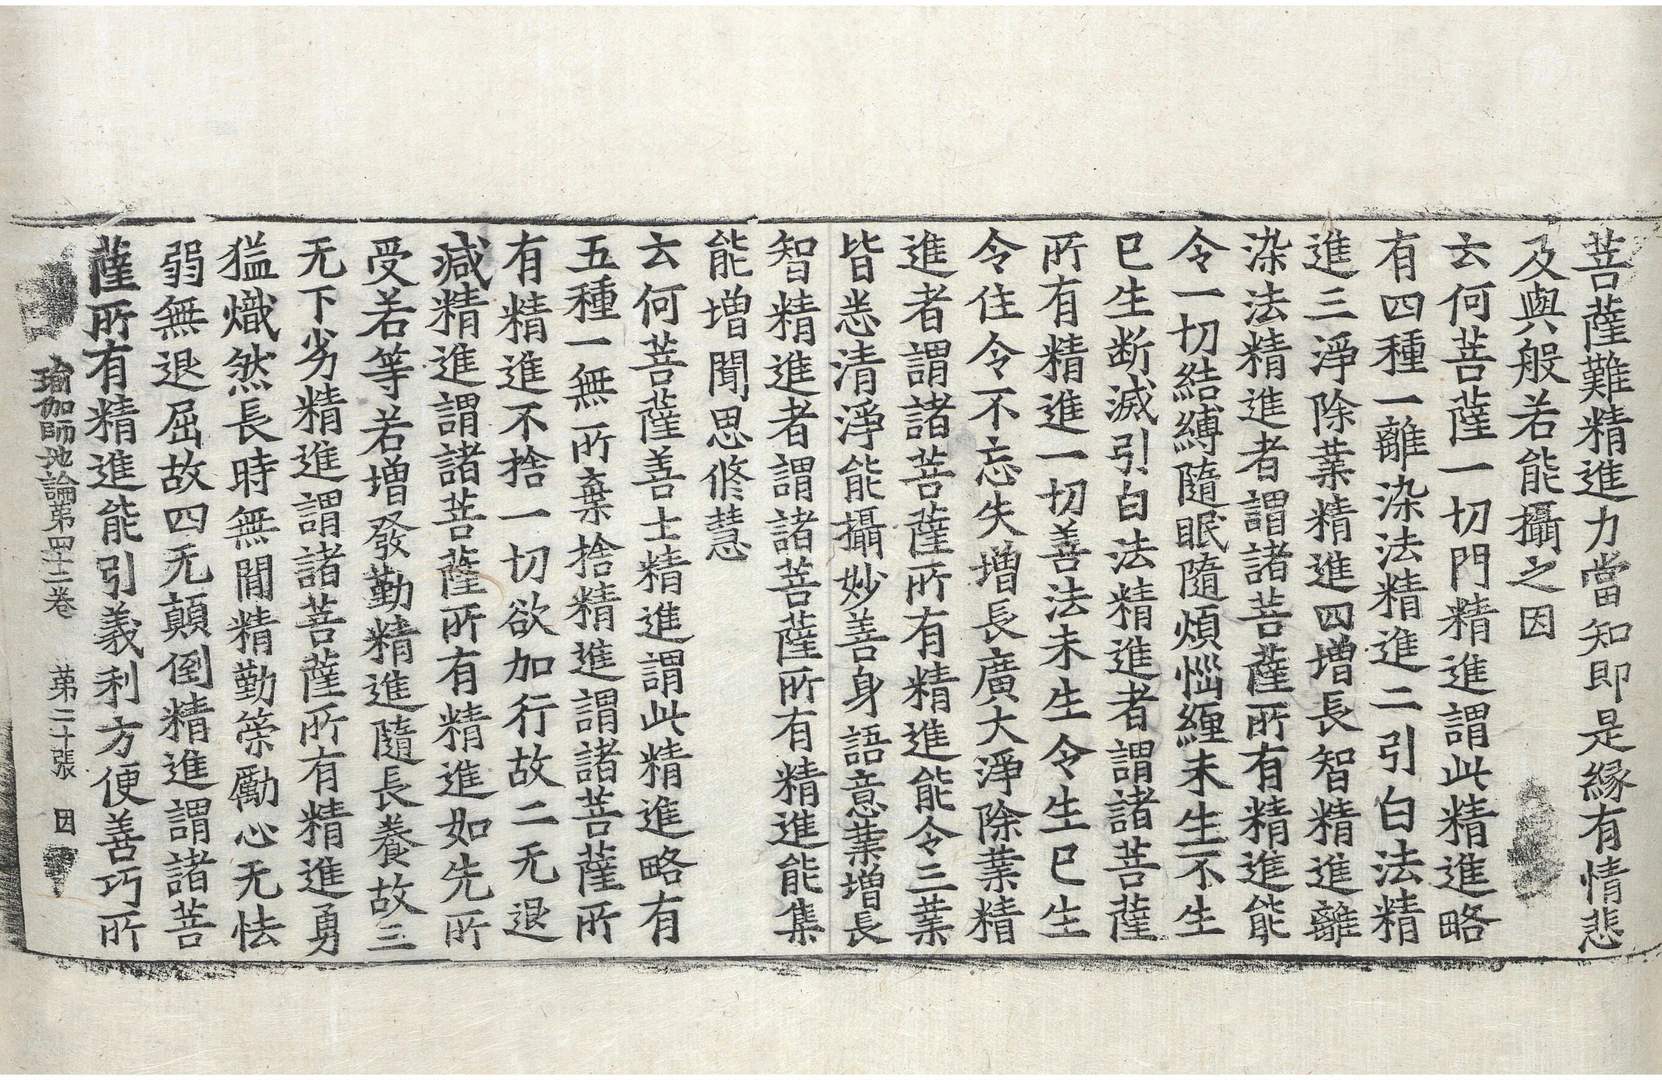 菩薩難精進力當知即是緣有情悲
及與般若能攝之因
云何菩薩一切門精進謂此精進略
有四種一離染法精進二引白法精
進三淨除業精進四增長智精進離
染法精進者謂諸菩薩所有精進能
令一切結縛隨眠隨煩惱纏未生不生
已生斷滅引白法精進者謂諸菩薩
所有精進一切善法未生令生已生
令住令不忘失增長廣大淨除業精
進者謂諸菩薩所有精進能令三業
皆悉清淨能攝妙善身語意業增長
智精進者謂諸菩薩所有精進能集
能增聞思修慧
云何菩薩善士精進謂此精進略有
五種一無所棄捨精進謂諸菩薩所
有精進不捨一切欲加行故二无退
減精進謂諸菩薩所有精進如先所
受若等若增發勤精進隨長養故三
无下劣精進謂諸菩薩所有精進勇
猛熾然長時無間精勤策勵心无怯
弱無退屈故四无顛倒精進謂諸菩
薩所有精進能引義利方便善巧所
瑜伽師地論第四十二卷 第二十張 因